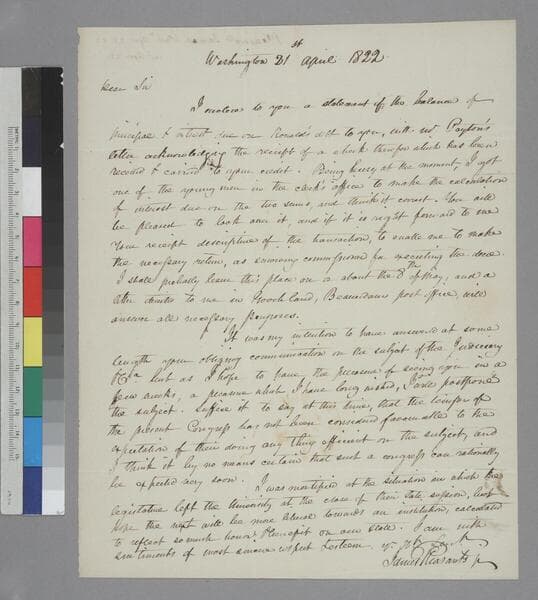 Washington 21st April 1822.
Dear Sir
I enclose to you a statement of the balance of
principal & interest due on Ronald's debt to you, with Mr Peyton's
letter acknowledging the receipt of a check therefor which has been
received & carried to your credit. Being busy at the moment, I got
one of the young men in the clerk's office to make the calculation
of interest due on the two sums, and think it correct. You will
be pleased to look over it, and if it is right forward to me
your receipt descriptive of the transaction, to enable me to make
the necessary return, as surviving commissioner for executing the decree
I shall probably leave this place on or about the 8th of May, and a
letter directed to me in Goochland, Beaverdam post office, will
answer all necessary purposes.
It was my intention to have answered at some
length your obliging communication on the subject of the Judiciary
&Ca but as I hope to have the pleasure of seeing you in a
few weeks, a pleasure which I have long wished, I will postpone
the subject. Suffice it to say at this time, that the temper of
the present Congress has not been considered favourable to the
expectation of their doing any thing efficient on the subject, and
I think it by no means certain that such a congress can rationally
be expected very soon. I was mortified at the situation in which the
legislature left the University at the close of their late session, but
hope the next will be more liberal towards an institution, calculated
to reflect so much honor & benefit on our state. I am with
sentiments of most sincere respect & esteem yr Ob. Servt.
James Pleasants jr